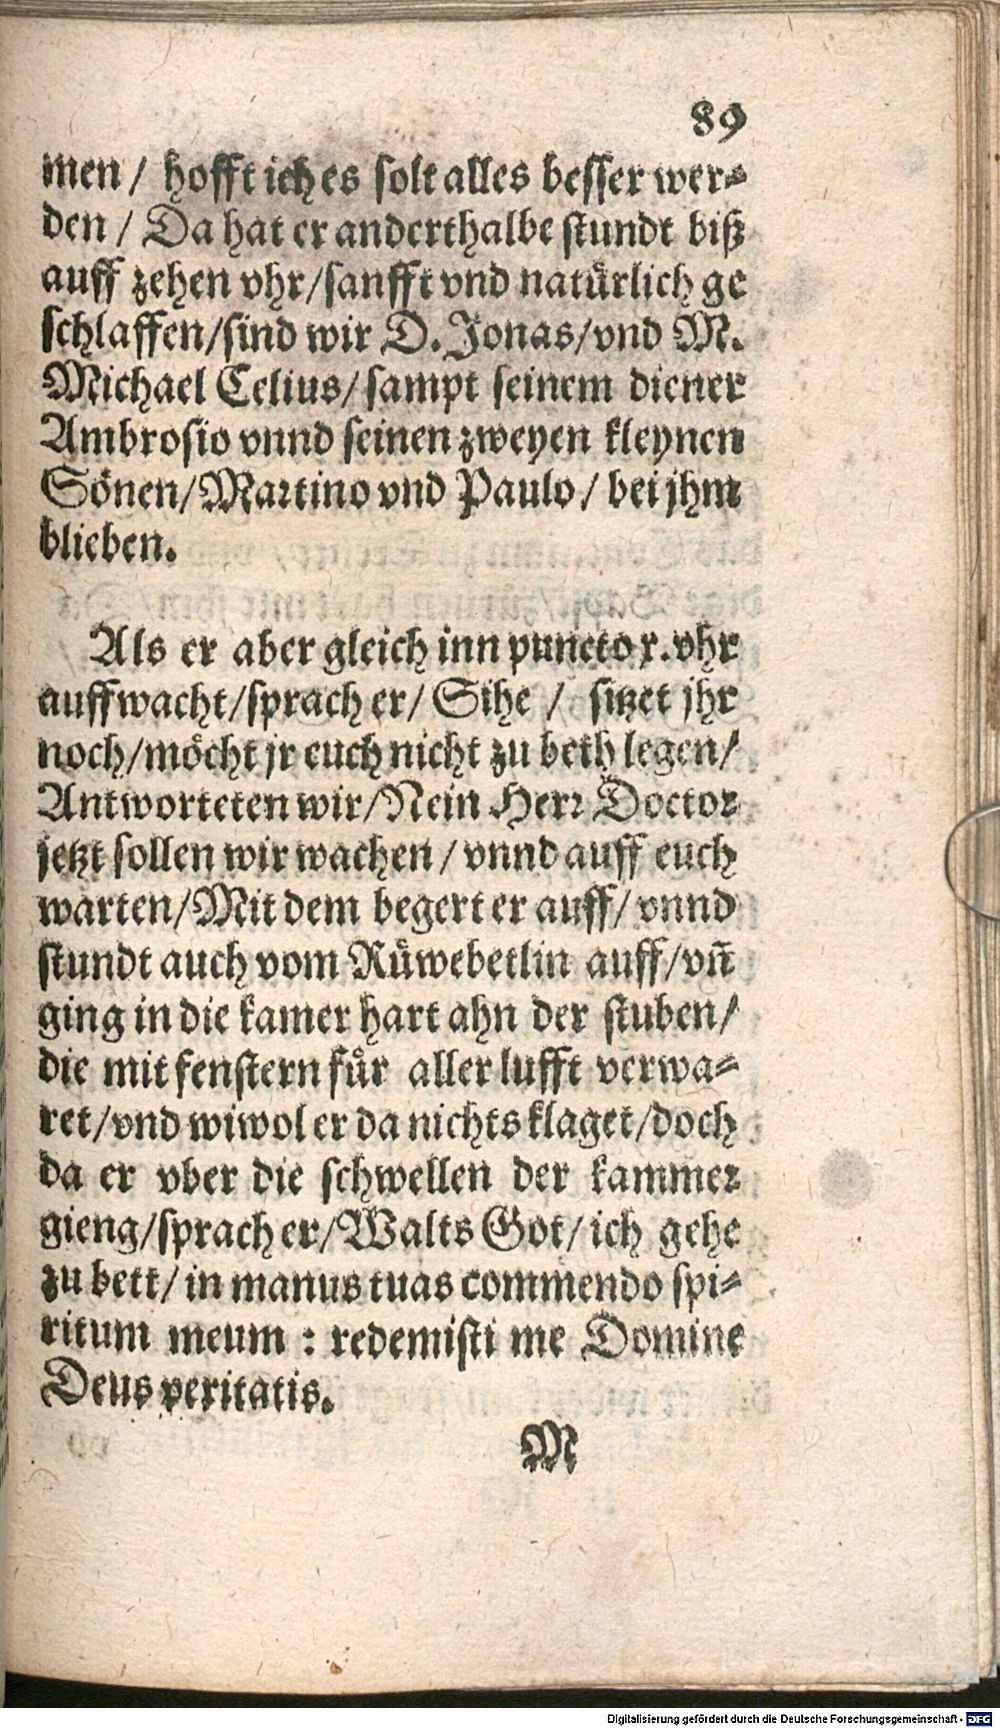 89
men / hofft ich es solt alles besser wer⸗
den / Da hat er anderthalbe stundt biß
auff zehen vhr/sanfft vnd natürlich ge
schlaffen/sind wir D. Jonas/vnd M.
Michael Celius/ sampt seinem diener
Ambrosio vnnd seinen zweyen kleynen
Sönen/Martino vnd Paulo / bei jhm
blieben.
Als er aber gleich inn puncto x. vhr
auffwacht/sprach er/ Sihe / sitzet jhr
noch/möcht jr euch nicht zu beth legen/
Antworteten wir/Nein Herr Doctor
jetzt sollen wir wachen / vnnd auff euch
warten/Mit dem begert er auff/ vnnd
stundt auch vom Rüwebetlin auff/vñ
ging in die kamer hart ahn der stuben/
die mit fenstern für aller lufft verwa⸗
ret/vnd wiwol er da nichts klaget/doch
da er vber die schwellen der kammer
gieng/sprach er/Walts Got/ ich gehe
zu bett/ in manus tuas commendo spi⸗
ritum meum : redemisti me Domine
Deus veritatis.
M
Digitalisierung gefördert durch die Deutsche Forschungsgemeinschaft - DFG